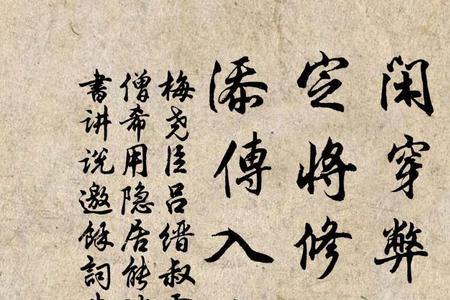 闲穿弊
定将修
添傳入
梅尧臣吕缙叔云
僧希用隐居能
書讲说邀餘詞